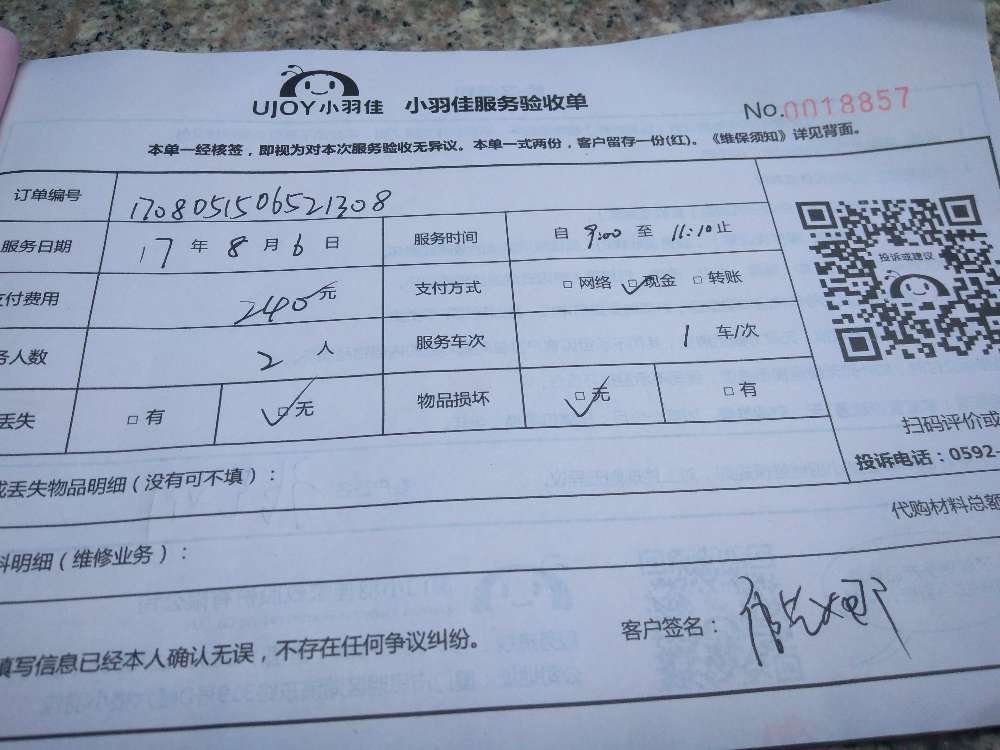 UJOY小羽佳 小羽佳服务验收单 No.0018857
本单一经核签，即视为对本次服务验收无异议。本单一式两份，客户留存一份(红)。《维保须知》详见背面。
订单编号 1708051506521308
服务日期 17 年 8 月 6 日 服务时间 自 9:00 至 11:10 止
付费用 240 元 支付方式 □网络 □现金 □转账
务人数 2 人 服务车次 1 车/次
丢失 □有 □无 物品损坏 □无 □有
投诉或建议
扫码评价或
投诉电话：0592-
或丢失物品明细（没有可不填）：
代购材料总额
料明细（维修业务）：
填写信息已经本人确认无误，不存在任何争议纠纷。 客户签名：